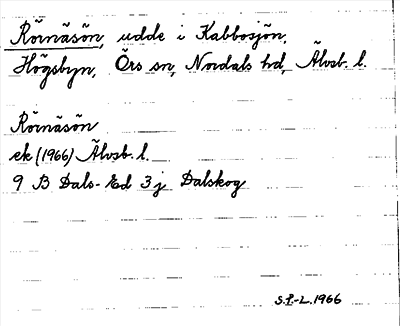 Rörnäsön, udde i Kabbosjön,
Högsbyn, Örs sn, Nordals hd, Älvsb. l.
Rörnäsön
ek (1966) Älvsb. l.
9 B Dals-Ed 3j Dalskog
S.P.-L. 1966